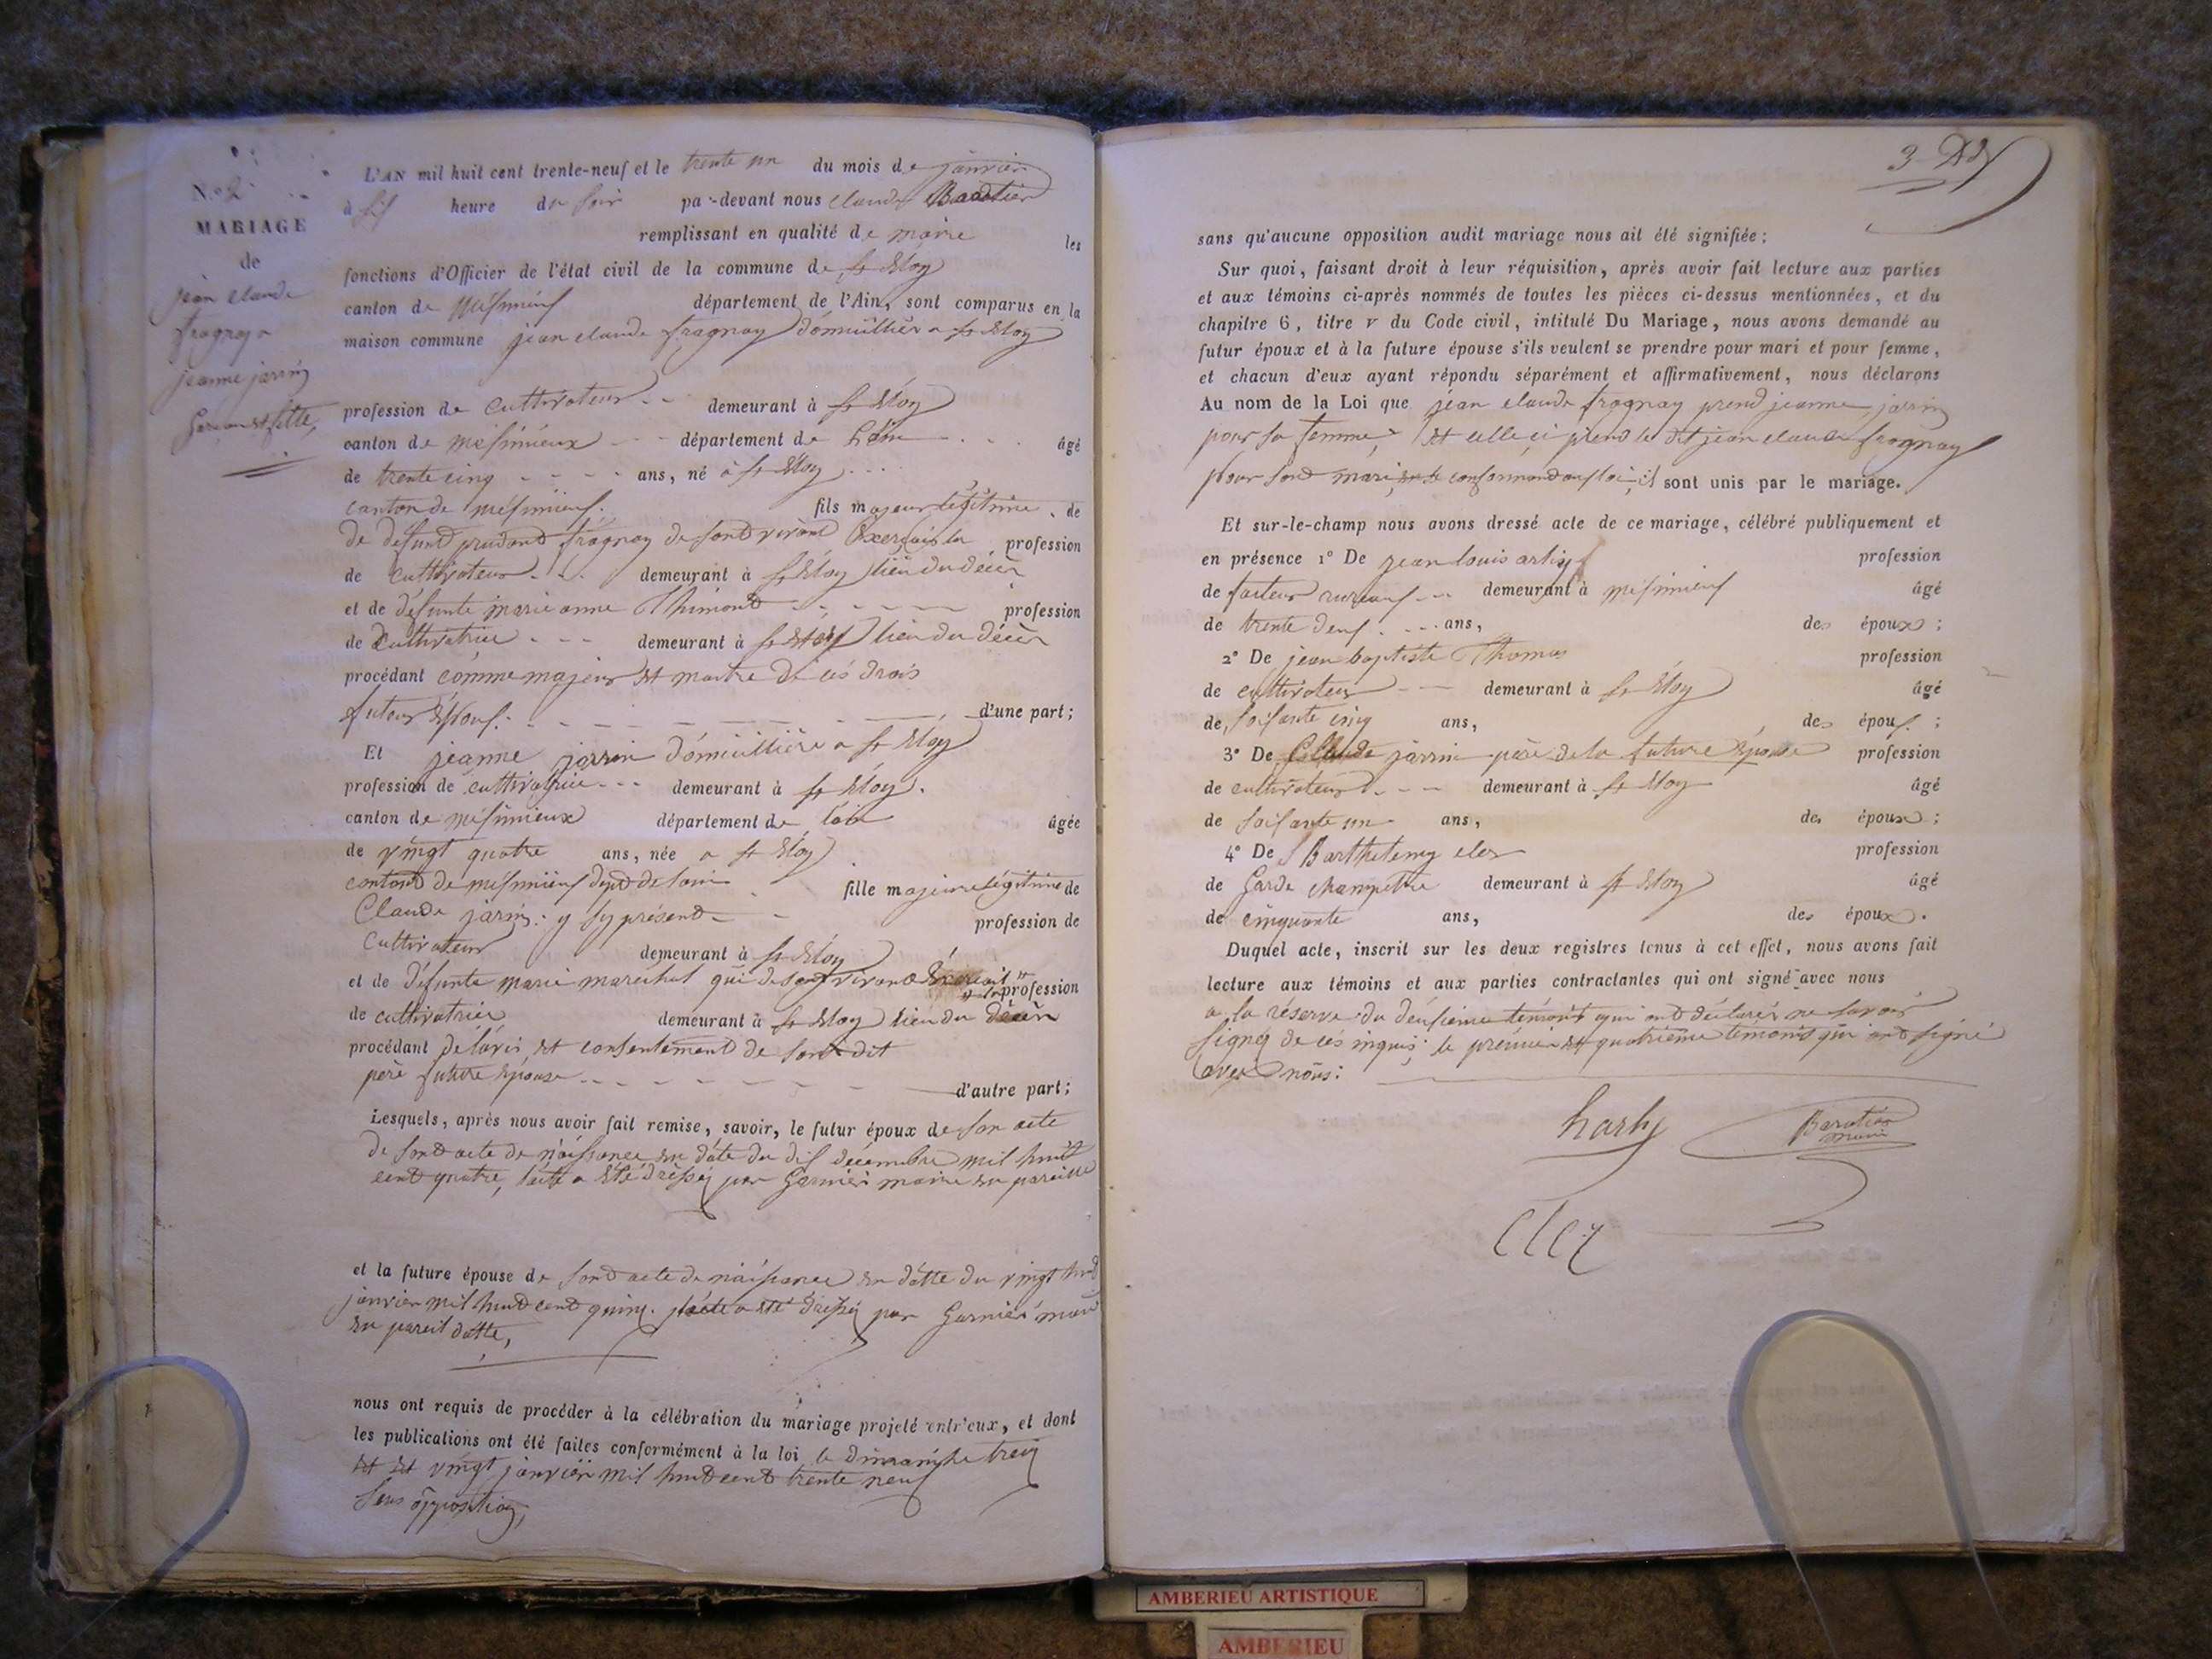 N.o 2
MARIAGE
de
jean claude
fragnay a
jeanne jarrin
Garçon et fille,
L'AN mil huit cent trente-neuf et le trente un du mois de janvier
à six heure du soir pa-devant nous claude Baratier
remplissant en qualité de maire les
fonctions d'Officier de l'état civil de la commune de St Eloy
canton de Méximieux département de l'Ain, sont comparus en la
maison commune jean claude fragnay domicillier a St Eloy
profession de cultivateur demeurant à St Eloy
canton de méximieux département de l'ain âgé
de trente cinq ans, né à St Eloy
canton de méximieux. fils majeur légitime, de
de défunt prudent fragnay de sond vivant Exersais la profession
de cultivateur demeurant à St Eloy lieu du décèr
et de défunte marie anne Thimond profession
de Cultivatrice demeurant à St Eloy lieu du décèr
procédant comme majeur et maitre de ces drois
futeur Epoux. d'une part;
Et jeanne jarrin domicillière a St Eloy
profession de cultivatrice demeurant à St Eloy.
canton de méximieux département de l'ain âgée
de vingt quatre ans, née a St Eloy
cantond de méximieux dept de l'ain fille majeure légitime de
Claude jarrin: y sy présent profession de
Cultivateur demeurant à St Eloy
et de défunte marie maréchal qui de sont vivant Exercait la profession
de cultivatrice demeurant à St Eloy lieu du décèr
procédant de l'avis, et consentement de sont dit
père future Epouse d'autre part;
Lesquels, après nous avoir fait remise, savoir, le futur époux de son acte
de sond acte de naissance en date du dix décembre mil huit
cent quatre, l'acte a été dressé par Garnier maire en pareille
et la future épouse de sond acte de naissance en datte du vingt huit
janvier mil huit cent quinze. l'acte a été dressé par Garnier maire
en pareil datte,
nous ont requis de procéder à la célébration du mariage projeté entr'eux, et dont
les publications ont été faites conformément à la loi le dimanche treize
et et vingt janvier mil huit cent trente neuf
sens opposition,
3
sans qu'aucune opposition audit mariage nous ait été signifiée;
Sur quoi, faisant droit à leur réquisition, après avoir fait lecture aux parties
et aux témoins ci-après nommés de toutes les pièces ci-dessus mentionnées, et du
chapitre 6, titre v du Code civil, intitulé Du Mariage, nous avons demandé au
futur époux et à la future épouse s'ils veulent se prendre pour mari et pour femme,
et chacun d'eux ayant répondu séparément et affirmativement, nous déclarons
Au nom de la Loi que jean claude fragnay prend jeanne jarrin
pour sa femme, et celle ci prend le dit jean claude fragnay
pour sond mari, conformend aux loi, il sont unis par le mariage.
Et sur-le-champ nous avons dressé acte de ce mariage, célébré publiquement et
en présence 1° De jean louis profession
de facteur ruraux demeurant à méximieux âgé
de trente deux ans, des époux;
2° De jean baptiste Thomas profession
de cultivateur demeurant à St Eloy âgé
de, soixante cinq ans, des époux;
3° De Claude jarrin père de la future Epouse profession
de cultivateur demeurant à St Eloy âgé
de soixante un ans, des époux;
4° De Barthelemy cler profession
de Garde champetre demeurant à St Eloy âgé
de cinquante ans, des époux.
Duquel acte, inscrit sur les deux registres tenus à cet effet, nous avons fait
lecture aux témoins et aux parties contractantes qui ont signé avec nous
a la réserve du deuxième témoins qui ont déclarér ne savoir
signer de ces inquis; le premier et quatrième temoins qui ont signé
avec nous:
Baratier
maire
Cler
AMBERIEU ARTISTIQUE
AMBERIEU